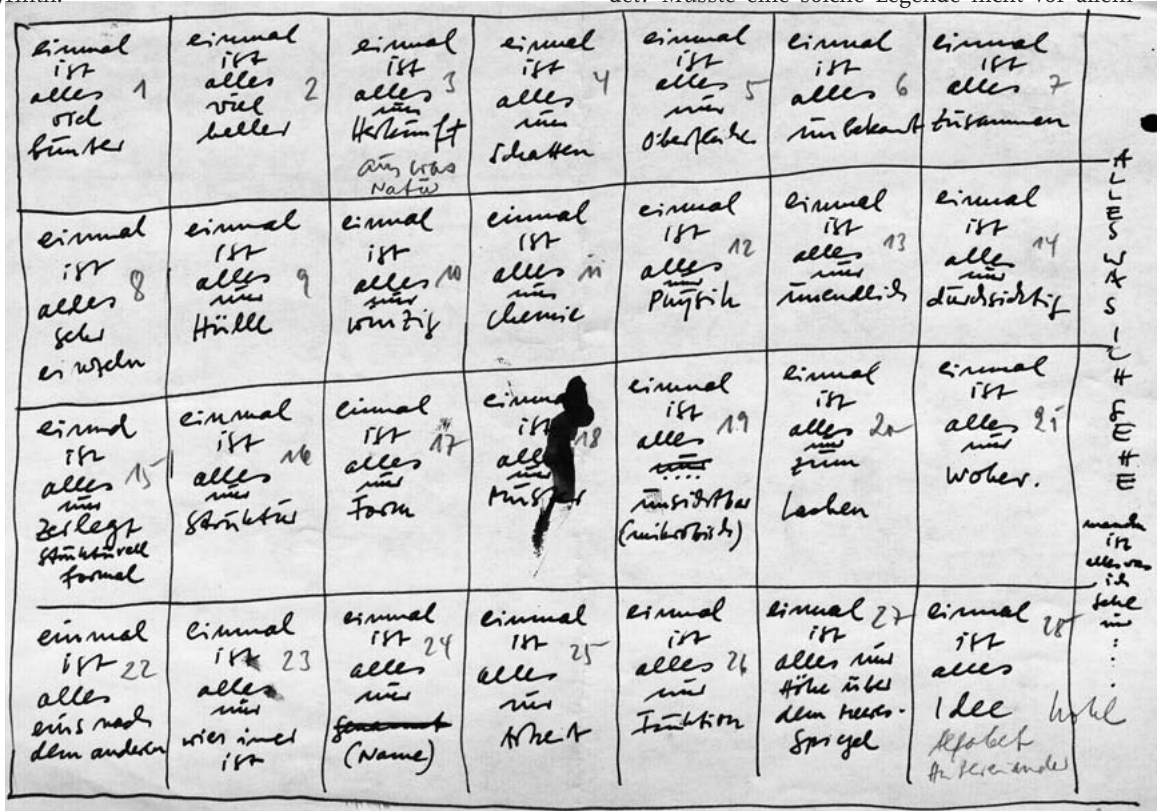 det? Müsste eine solche Legende nicht vor allem
einmal
ist
alles 1
viel
bunter
einmal
ist
alles 2
viel
heller
einmal
ist
alles 3
nur
Herkunft
aus was
Natur
einmal
ist
alles 4
nur
Schatten
einmal
ist
alles 5
nur
Oberfläche
einmal
ist
alles 6
unbekannt
einmal
ist
alles 7
zusammen
einmal
ist
alles 8
sehr
einzeln
einmal
ist
alles 9
nur
Hülle
einmal
ist
alles 10
nur
winzig
einmal
ist
alles 11
nur
Chemie
einmal
ist
alles 12
nur
Physik
einmal
ist
alles 13
nur
unendlich
einmal
ist
alles 14
nur
durchsichtig
einmal
ist
alles 15
nur
zerlegt
strukturell
formal
einmal
ist
alles 16
nur
Struktur
einmal
ist 17
alles
nur
Form
einmal
ist 18
alles
nur
Muster
einmal
ist
alles 19
nur
unsichtbar
(mikrobisch)
einmal
ist
alles 20
nur
zum
Lachen
einmal
ist
alles 21
nur
woher.
einmal
ist 22
alles
eins nach
dem anderen
einmal
ist 23
alles
nur
wies immer
ist
einmal
ist 24
alles
nur
genannt
(Name)
einmal
ist 25
alles
nur
Arbeit
einmal
ist
alles 26
nur
Funktion
einmal 27
ist
alles nur
Höhe über
dem Meeres-
Spiegel
einmal
ist 28
alles
Idee
ALLES WAS ICH SEHE
ist
alles was
ich
sehe
nur : . . .